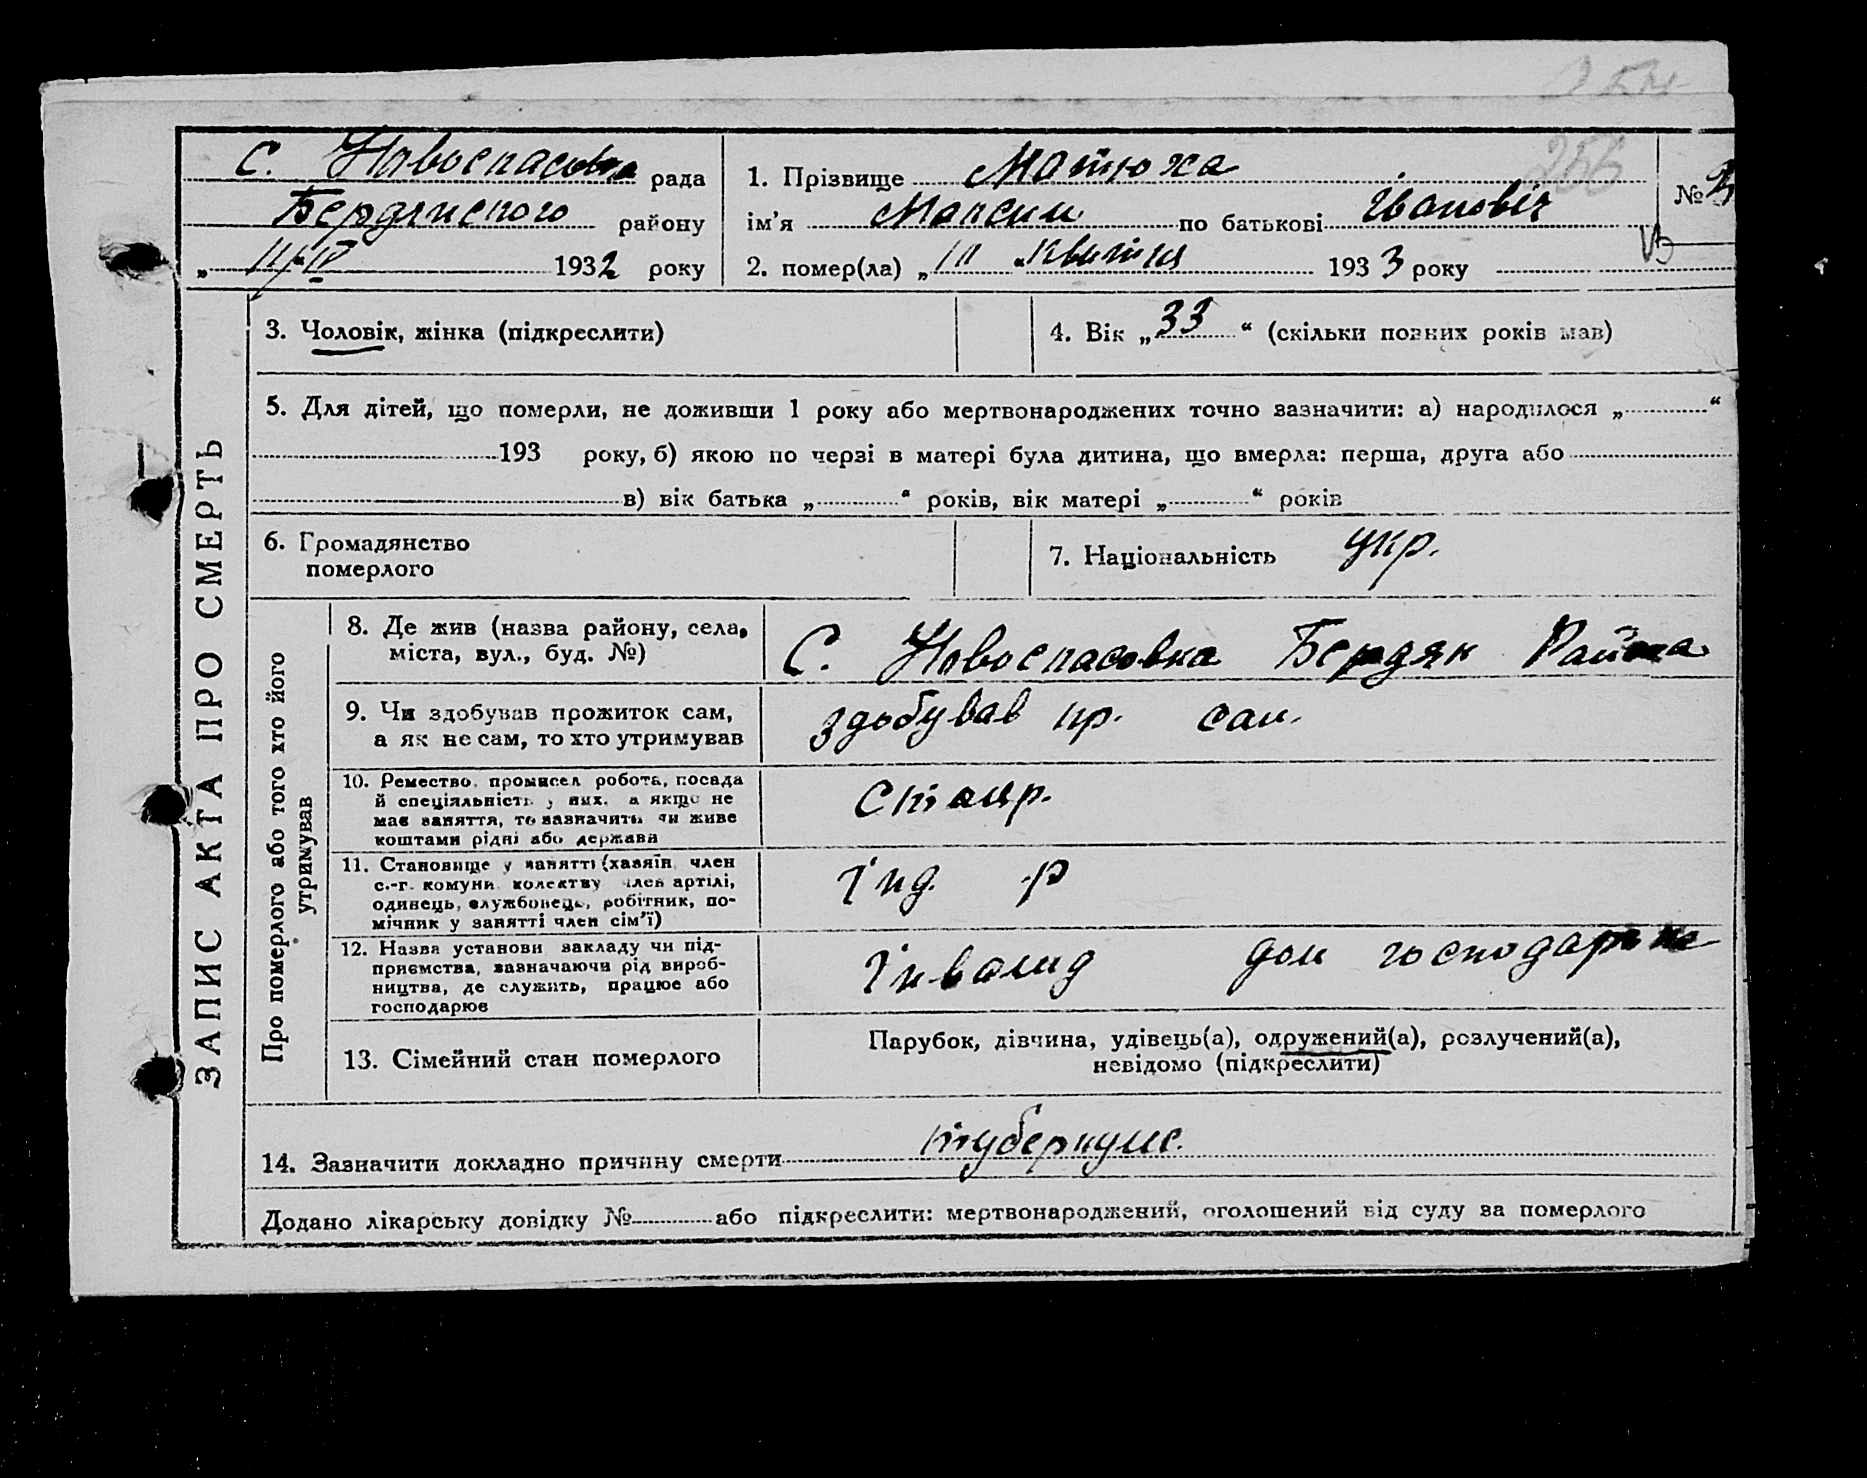 256
С. Новоспасовка рада
Бердянского району
„ 11/IV 1932 року
1. Прізвище Матюха
ім'я Максим по батькові Івановіч
2. помер(ла) „ 10 “ квитня 1933 року
№
ЗАПИС АКТА ПРО СМЕРТЬ
3. Чоловік, жінка (підкреслити)
4. Вік „ 33 “ (скільки повних років мав)
5. Для дітей, що померли, не доживши 1 року або мертвонароджених точно зазначити: а) народилося „ “
193 року, б) якою по черзі в матері була дитина, що вмерла: перша, друга або
в) вік батька „ “ років, вік матері „ “ років
6. Громадянство
померлого
7. Національність укр.
Про померлого або того хто його
утримував
8. Де жив (назва району, села,
міста, вул., буд. №)
С. Новоспасовка Бердян Района
9. Чи здобував прожиток сам,
а як не сам, то хто утримував
здобував пр. сам.
10. Ремество, промисел робота, посада
й спеціяльність у них, а якщо не
має заняття, то зазначити чи живе
коштами рідні або держави
11. Становище у занятті (хазяїн, член
с.-г. комуни колективу член артілі,
одинець, службовець, робітник, по-
мічник у занятті член сім'ї)
Інд. р
12. Назва установи закладу чи під-
приємства, зазначаючи рід вироб-
ництва, де служить, працює або
господарює
Інвалид дом
13. Сімейний стан померлого
Парубок, дівчина, удівець(а), одружений(а), розлучений(а),
невідомо (підкреслити)
14. Зазначити докладно причину смерти туберкулс.
Додано лікарську довідку № або підкреслити: мертвонароджений, оголошений від суду за померлого